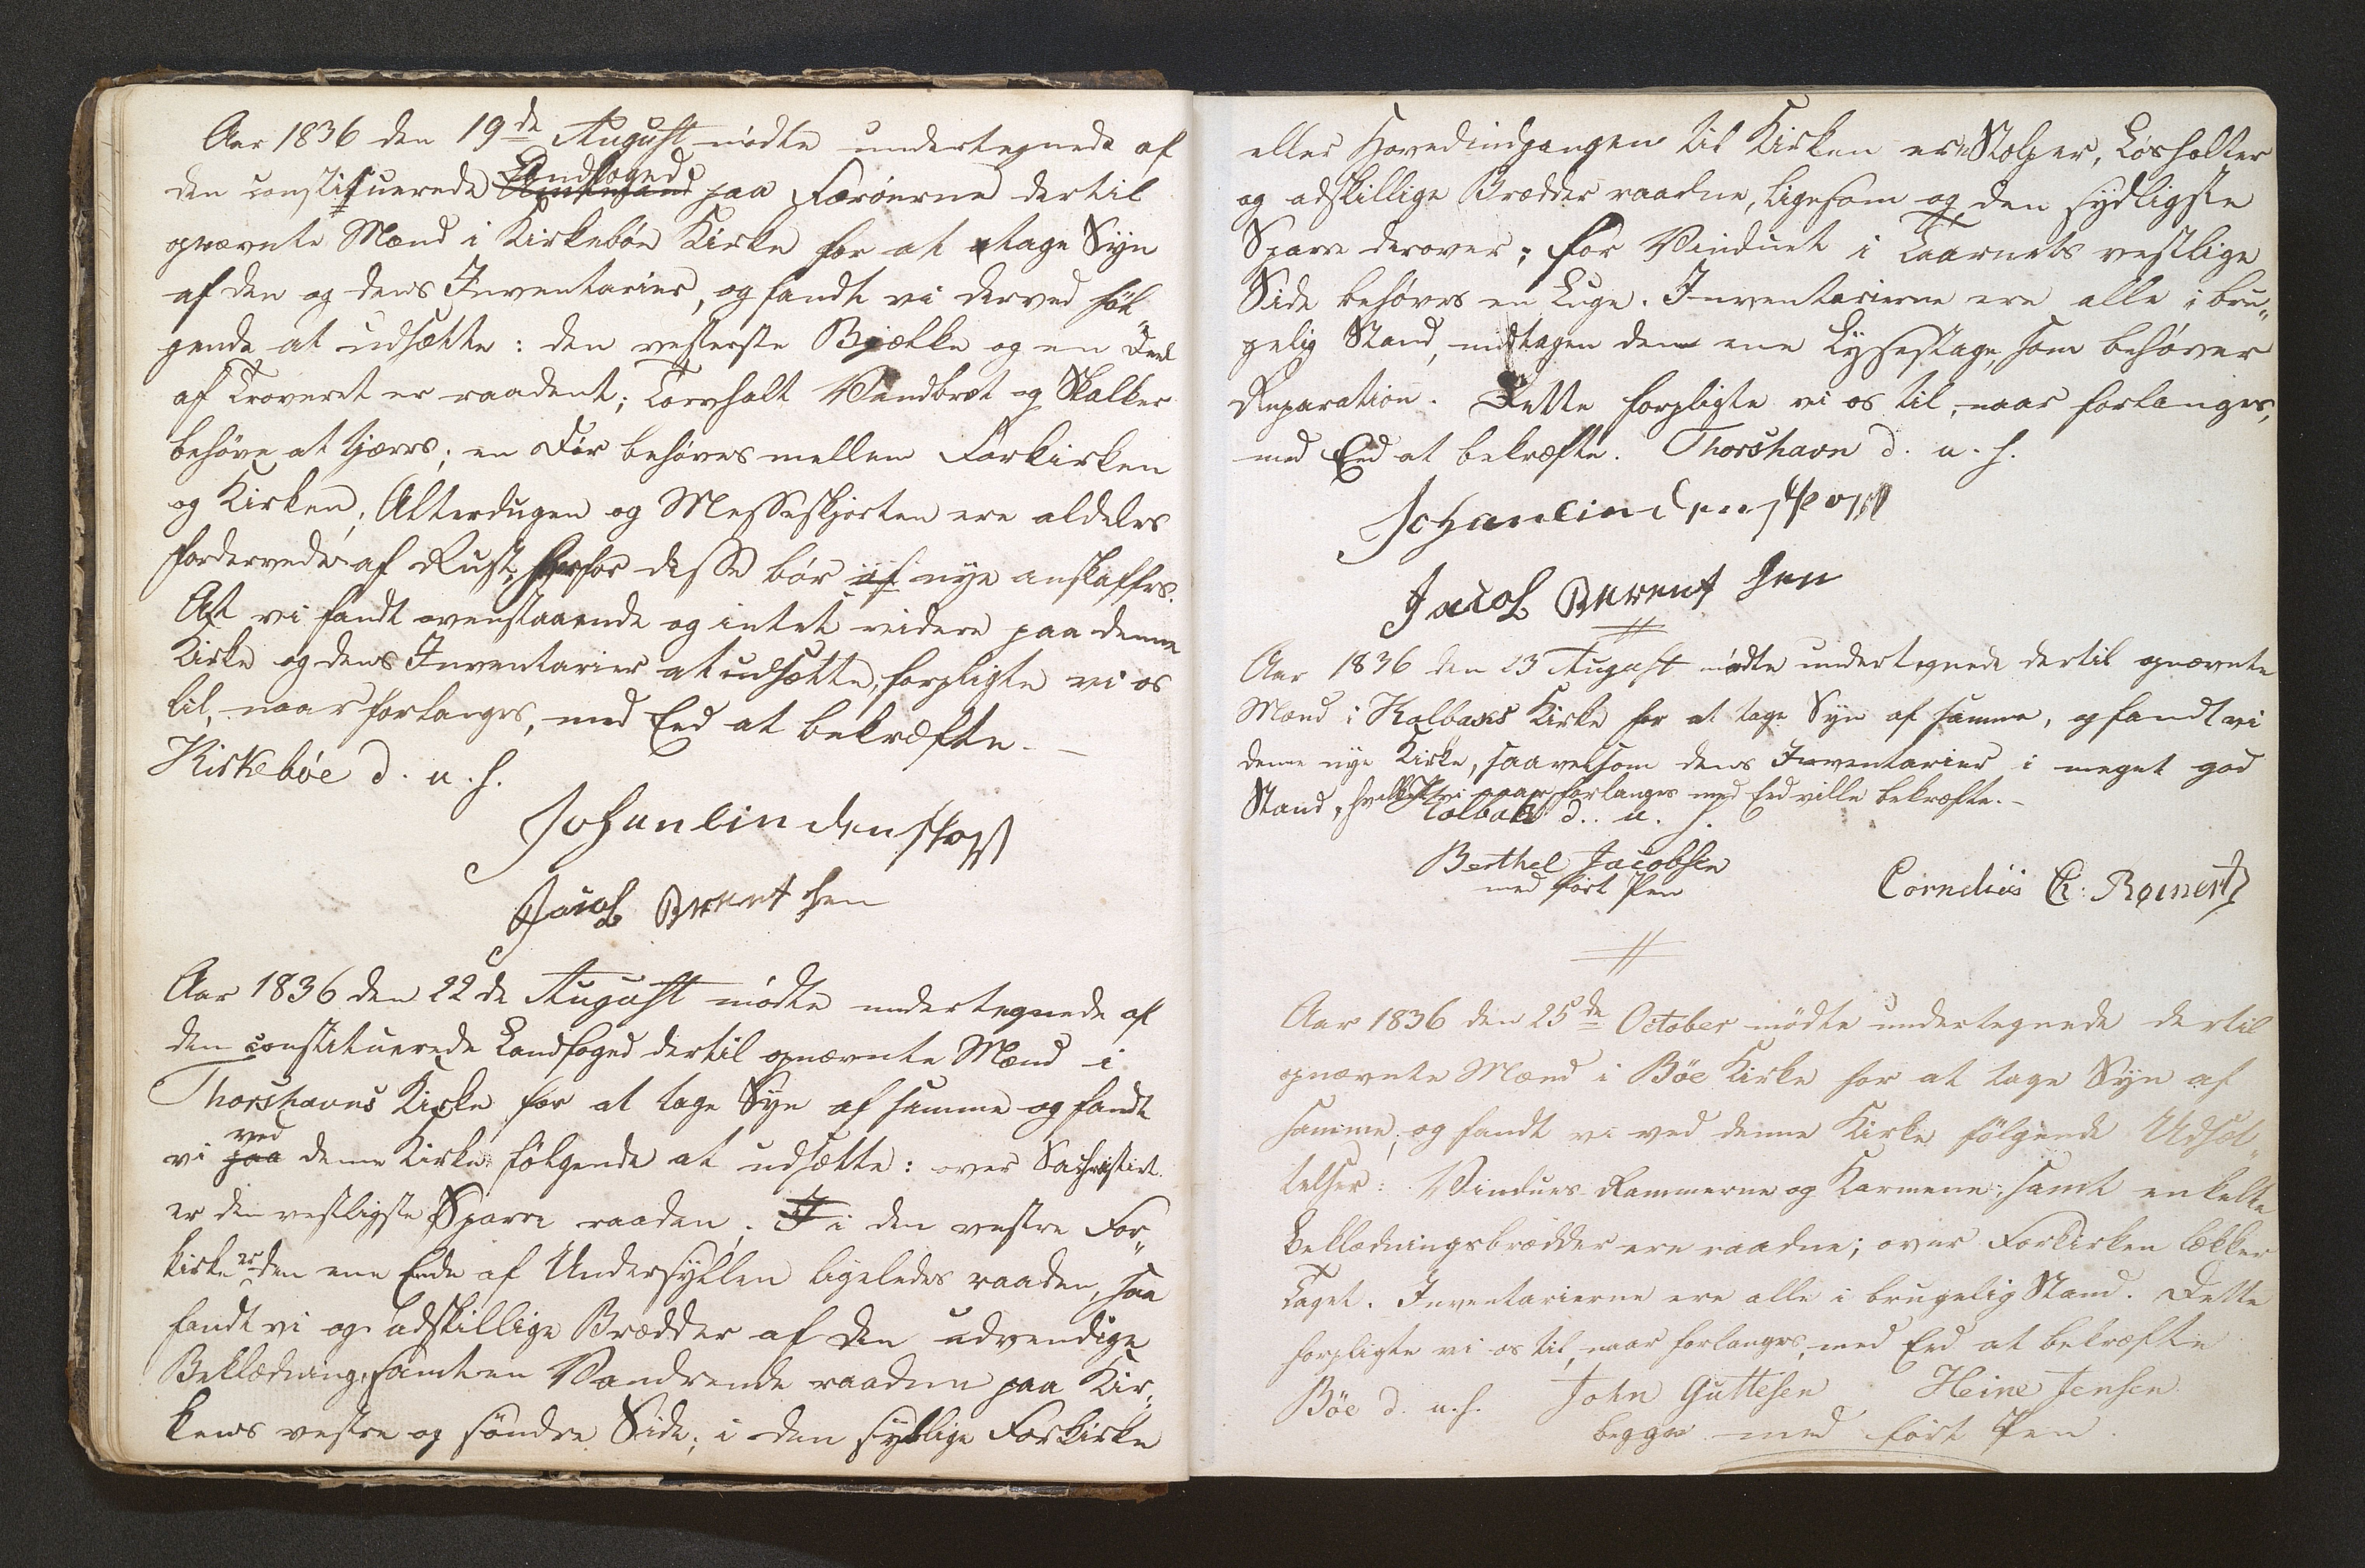 Aar 1836 den 19de August mödte undertegnede af
den constituerede Landfoged paa Færöerne dertil
opnævnte Mænd i Kirkeböe Kirke for at tage Syn
af den og dens Inventarier, og fandt vi derved föl-
gende at udsætte: den vesterste Bjælke og en Deel
af Troveret er raadent; Torvholt Vandbræt og Skalker
behöve at tjæres; en Dör behöves mellem Forkirken
og Kirken, Alterdugen og Messeskjorten ere aldeles
fordervede af Rust, hvorfor disse bör nye anskaffes.
At vi fandt ovenstaaende og intet videre paa denne
Kirke og dens Inventarier at udsætte, forpligte vi os
til, naar forlanges, med Eed at bekræfte. —
Kirkebøe d. u. s.
Johan Lindenskow
Jacob Berentsen
Aar 1836 den 22de August mödte undertegnede af
den constituerede Landfoged dertil opnævnte Mænd i
Thorshavns Kirke for at tage Syn af samme og fandt
vi ved denne Kirke fölgende at udsætte: over Sachristiet
er den vestligste Sparre raaden; i den vestre For„
kirke er den ene Ende af Undersyllen ligeledes raaden, saa
fandt vi og adskillige Brædder af den udvendige
Beklædning, samt en Vandrende raadne paa Kir„
kens vestre og söndre Side; i den sydlige Forkirke
eller Hovedindgangen til Kirken ere Stolper, Løsholter
og adskillige Brædder raadne, ligesom og den sydligste
Sparre derover; for Vinduet i Taarnets vestlige
Side behöves en Luge. Inventarierne ere alle i bru„
gelig Stand, undtagen den ene Lysestage, som behöver
Reparation. Dette forpligte vi os til, naar forlanges,
med Eed at bekræfte. Thorshavn d. u. s.
Johan Lindenskow
Jacob Berentsen
Aar 1836 den 23 August mödte undertegnede dertil opnævnte
Mænd i Kalbaks Kirke for at tage Syn af samme, og fandt vi
denne nye Kirke, saavelsom dens Inventarier i meget god
Stand, hvilket vi naar forlanges med Eed ville bekræfte. –
Kalbak d. u. s.
Berthel Jacobsen
med fört Pen
Cornelius C. Reinert
Aar 1836 den 25de October mödte undertegnede dertil
opnævnte Mænd i Böe Kirke for at tage Syn af
samme, og fandt vi ved denne Kirke fölgende Udsæt„
telser: Vindues-Rammerne og Karmene, samt enkelte
Beklædningsbrædder ere raadne; over Forkirken lækker
Taget. Inventarierne ere alle i brugelig Stand. Dette
forpligte vi os til, naar forlanges, med Eed at bekræfte
Böe d. u. s. John Guttesen Heine Jensen
begge med fört Pen.